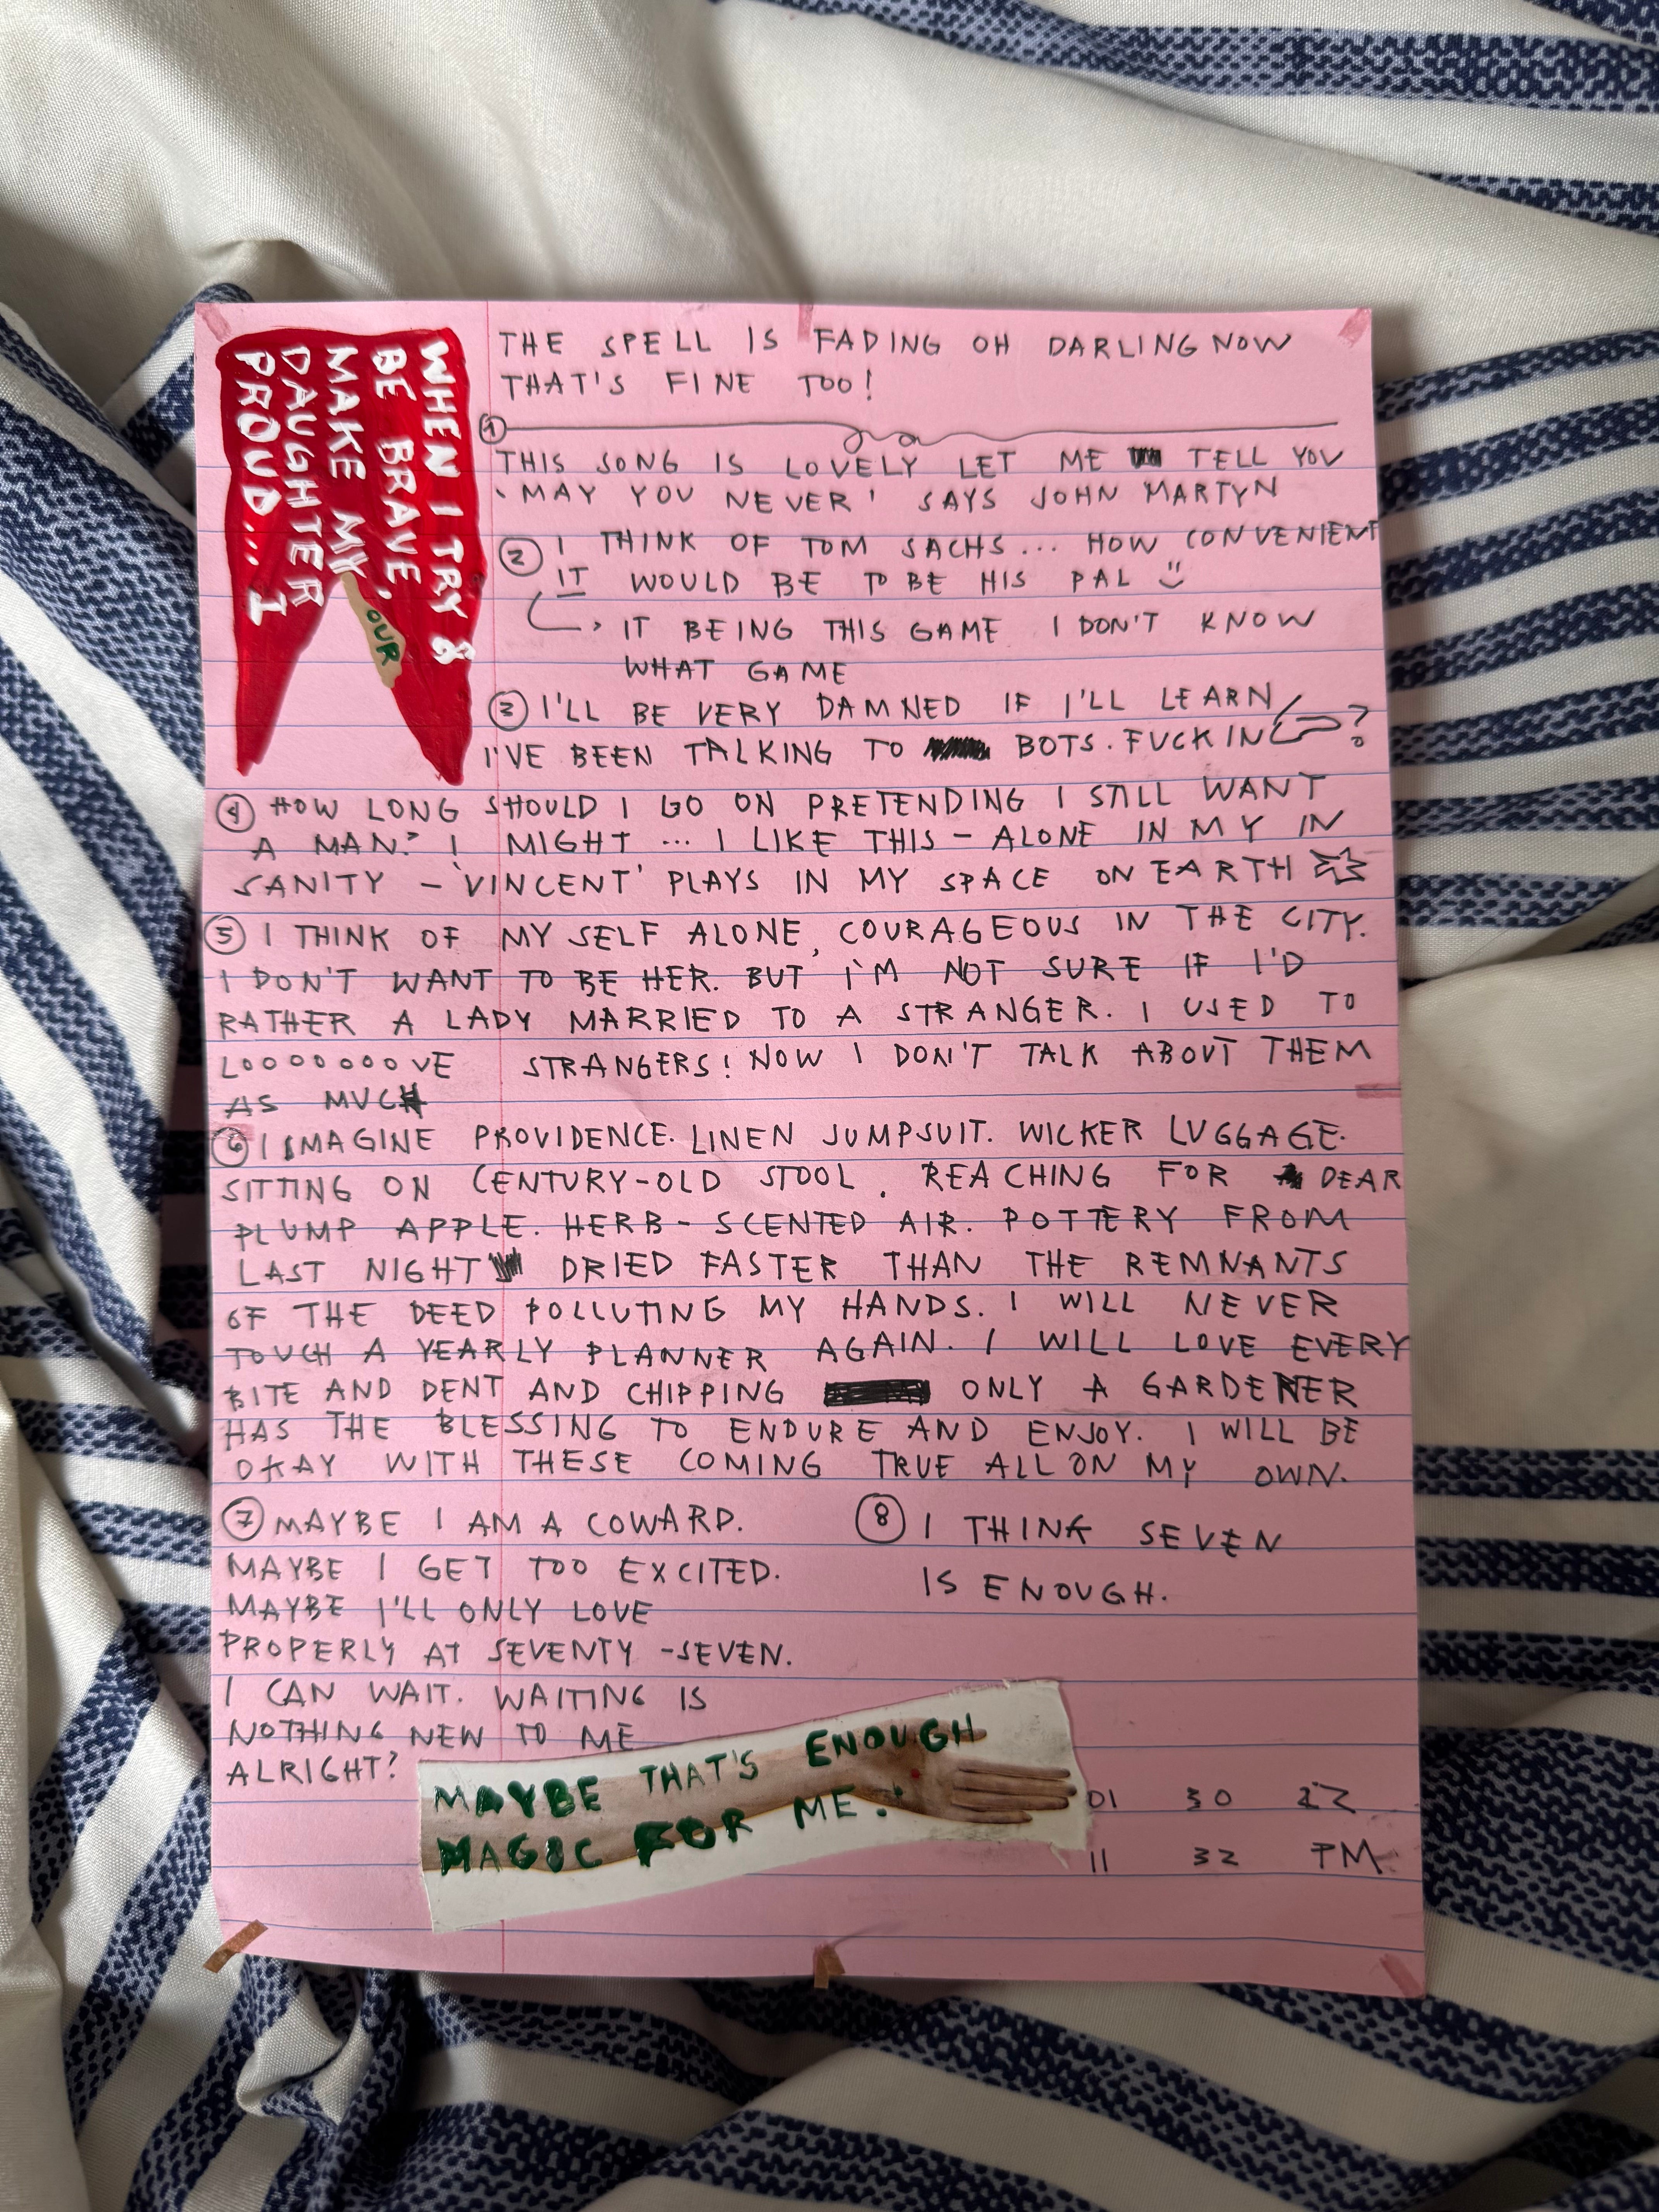 WHEN I TRY &
BE BRAVE,
MAKE MY
OUR
DAUGHTER
PROUD... I
THE SPELL IS FADING OH DARLING NOW
THAT'S FINE TOO!
1
THIS SONG IS LOVELY LET ME TELL YOU
'MAY YOU NEVER' SAYS JOHN MARTYN
2 I THINK OF TOM SACHS... HOW CONVENIENT
IT WOULD BE TO BE HIS PAL
IT BEING THIS GAME I DON'T KNOW
WHAT GAME
3 I'LL BE VERY DAMNED IF I'LL LEARN
I'VE BEEN TALKING TO BOTS. FUCKIN ?
4 HOW LONG SHOULD I GO ON PRETENDING I STILL WANT
A MAN? I MIGHT ... I LIKE THIS - ALONE IN MY IN
SANITY - 'VINCENT' PLAYS IN MY SPACE ON EARTH
5 I THINK OF MYSELF ALONE, COURAGEOUS IN THE CITY.
I DON'T WANT TO BE HER. BUT I'M NOT SURE IF I'D
RATHER A LADY MARRIED TO A STRANGER. I USED TO
LOOOOOOOVE STRANGERS! NOW I DON'T TALK ABOUT THEM
AS MUCH
6 I IMAGINE PROVIDENCE. LINEN JUMPSUIT. WICKER LUGGAGE.
SITTING ON CENTURY-OLD STOOL. REACHING FOR DEAR
PLUMP APPLE. HERB-SCENTED AIR. POTTERY FROM
LAST NIGHT DRIED FASTER THAN THE REMNANTS
OF THE DEED POLLUTING MY HANDS. I WILL NEVER
TOUCH A YEARLY PLANNER AGAIN. I WILL LOVE EVERY
BITE AND DENT AND CHIPPING ONLY A GARDENER
HAS THE BLESSING TO ENDURE AND ENJOY. I WILL BE
OKAY WITH THESE COMING TRUE ALL ON MY OWN.
7 MAYBE I AM A COWARD.
MAYBE I GET TOO EXCITED.
MAYBE I'LL ONLY LOVE
PROPERLY AT SEVENTY-SEVEN.
I CAN WAIT. WAITING IS
NOTHING NEW TO ME
ALRIGHT?
8 I THINK SEVEN
IS ENOUGH.
MAYBE THAT'S ENOUGH
MAGIC FOR ME.
01 30 22
11 32 PM